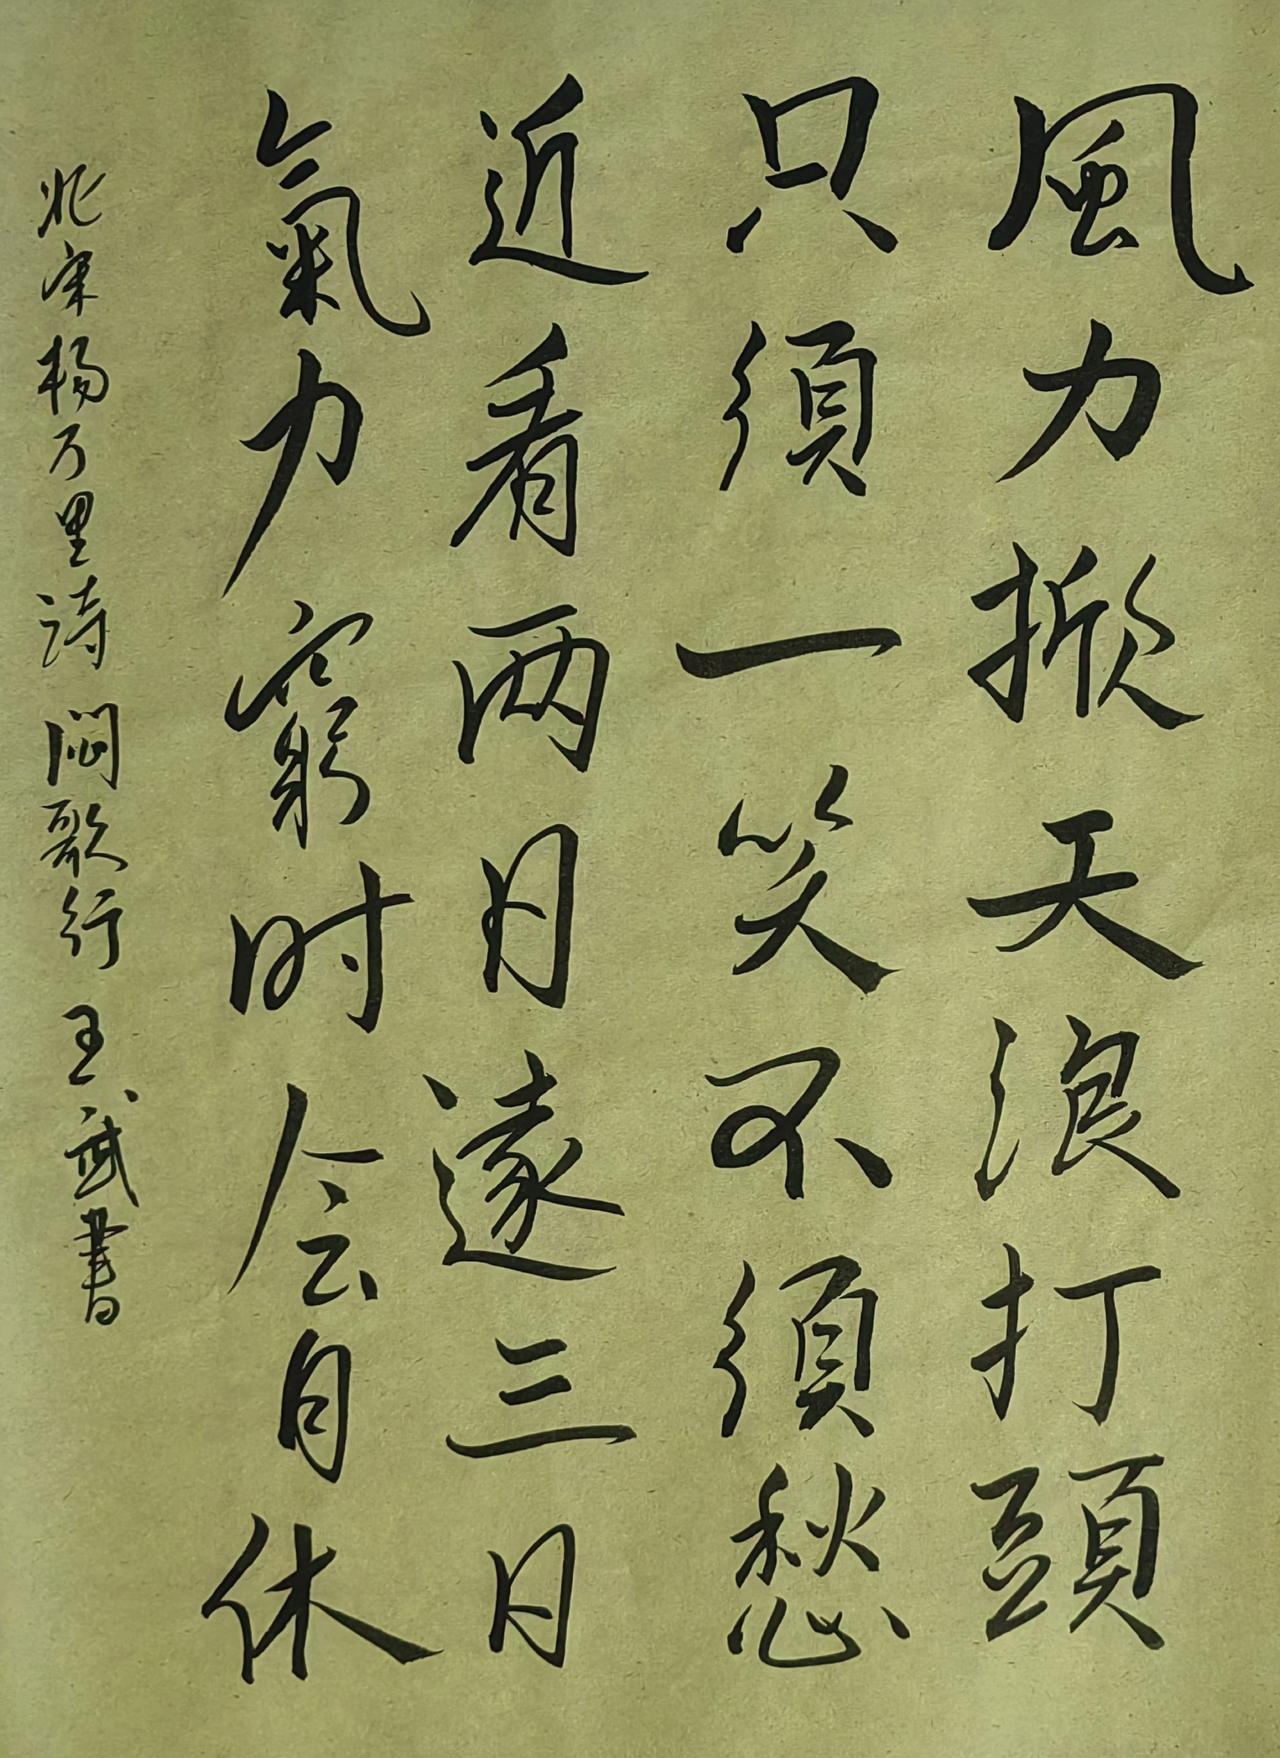 風力掀天浪打頭
只須一笑不須愁
近看两日遠三日
氣力窮时会自休
北宋杨万里詩 闷歌行 王武書